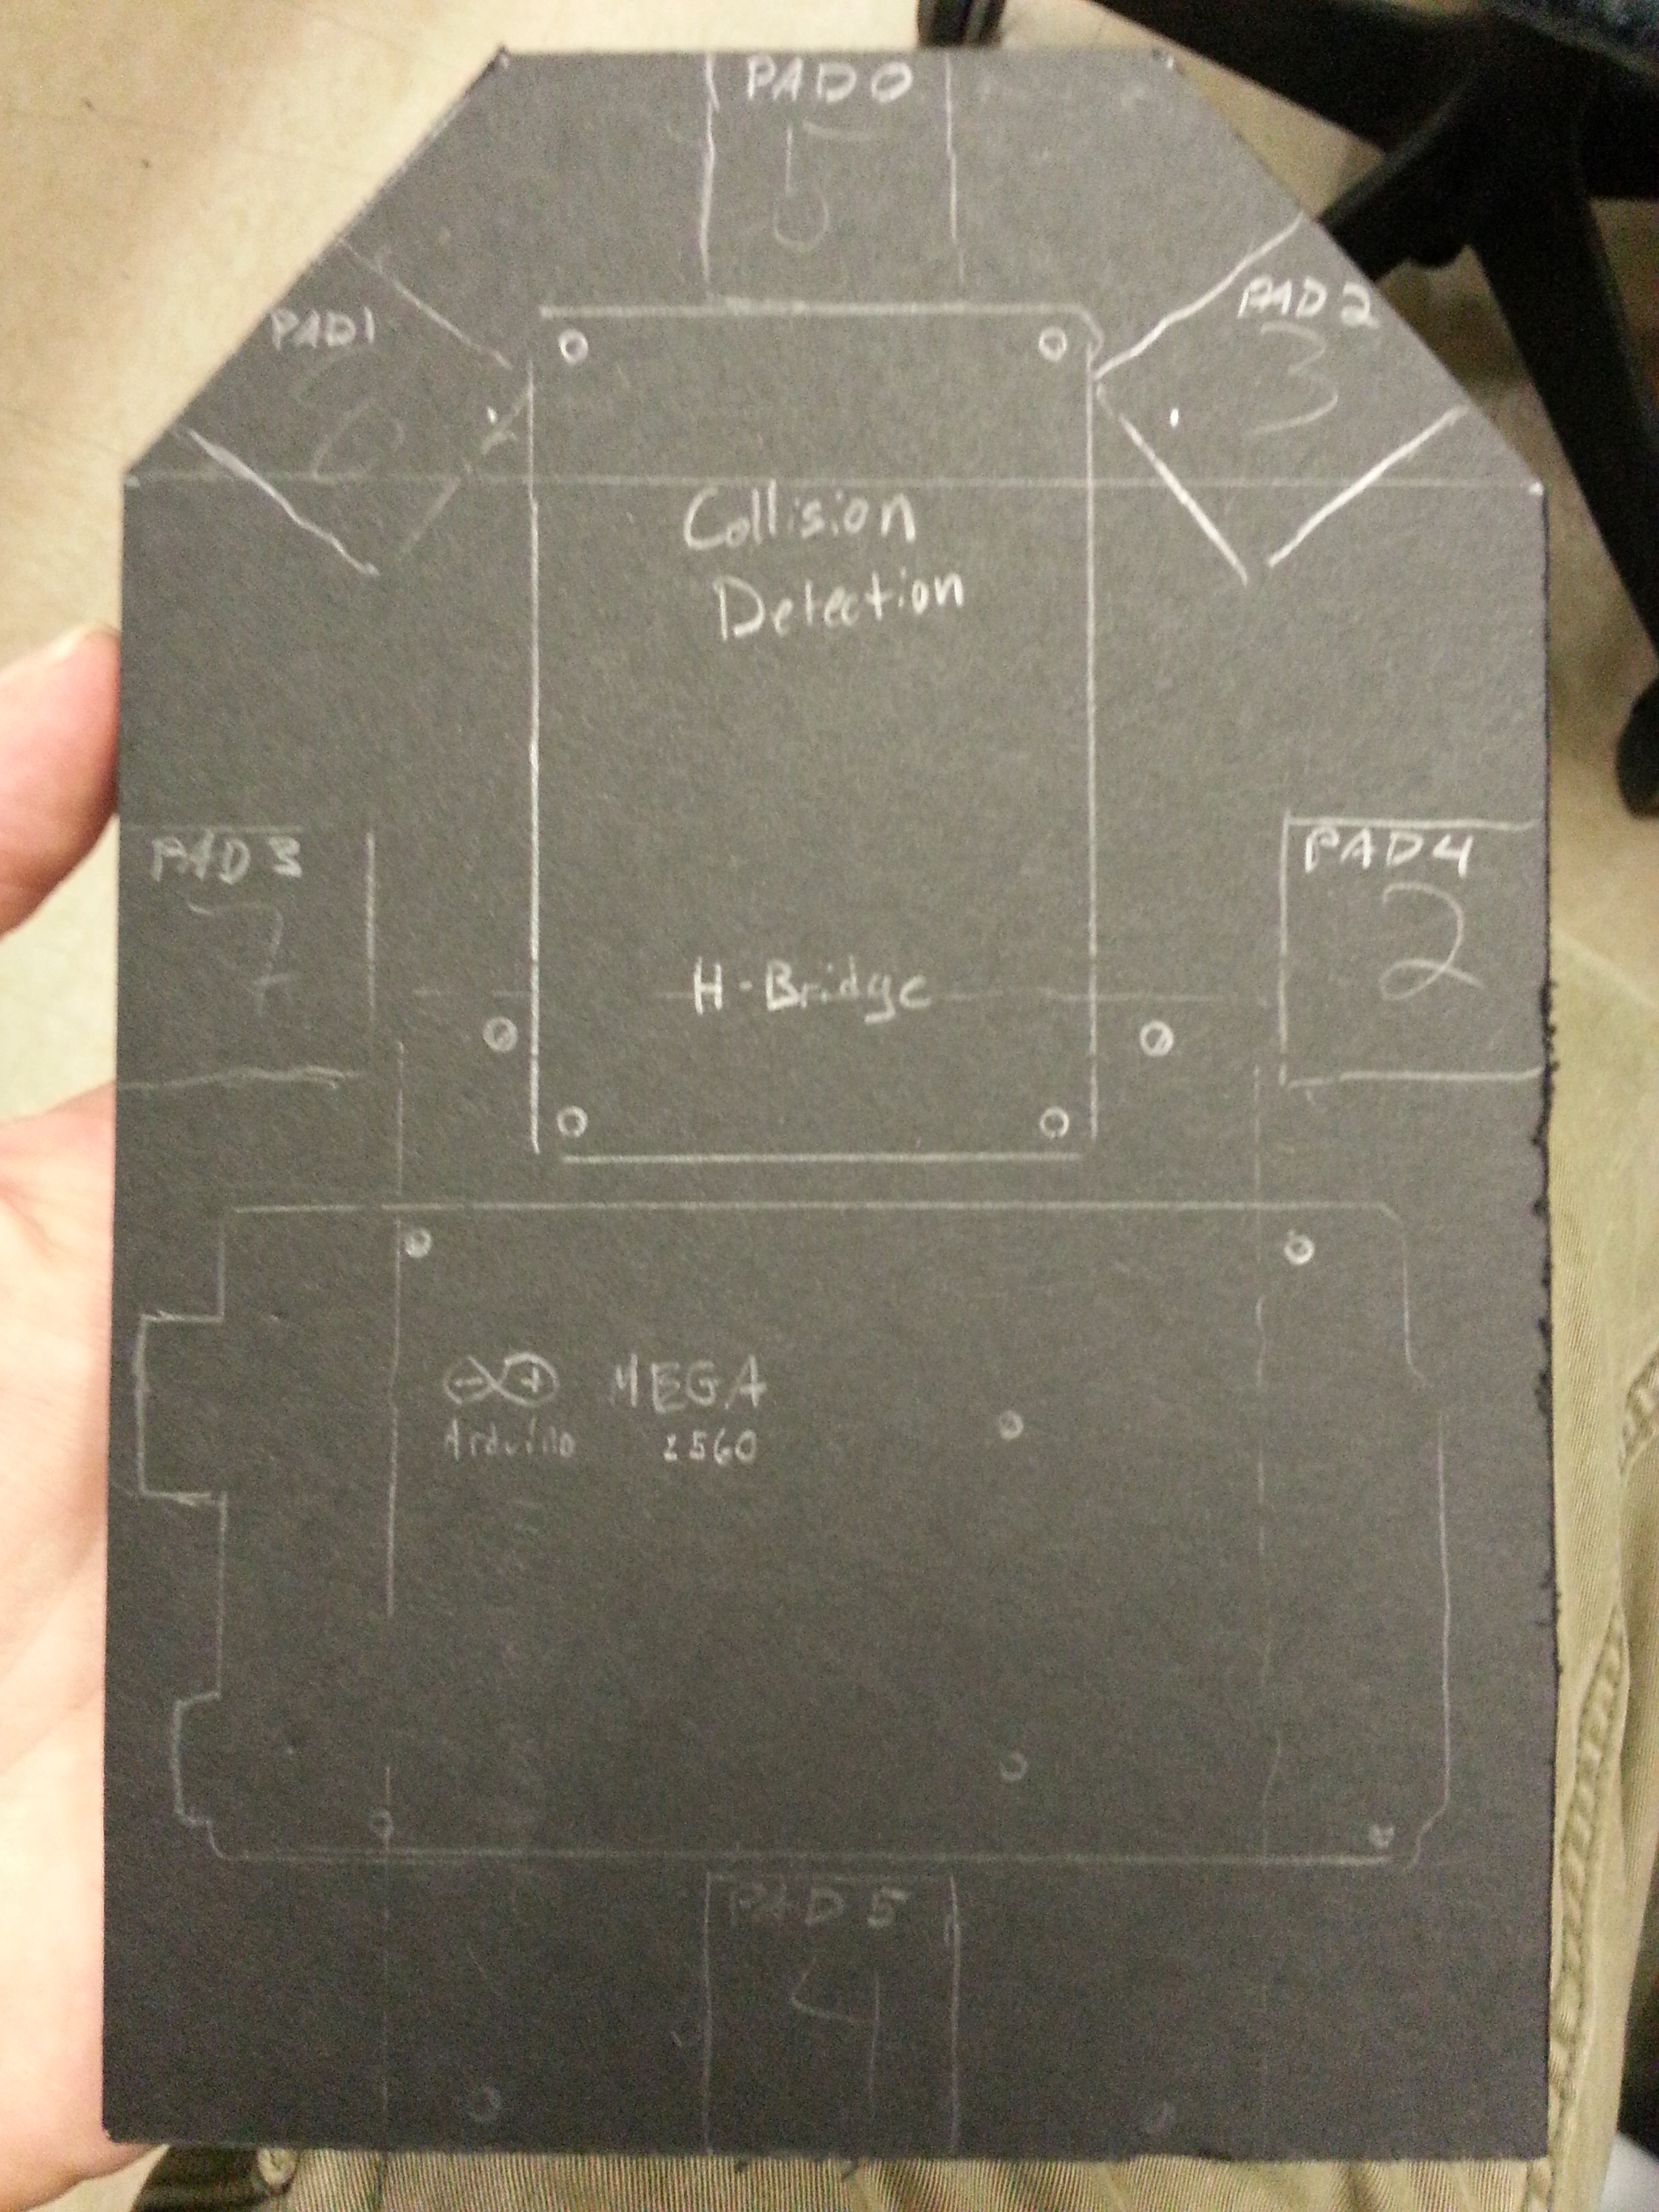 PAD0
5
PAD1
PAD2
3
Collision
Detection
PAD3
7
PAD4
2
H-Bridge
- +
MEGA
Arduino
2560
PAD5
4